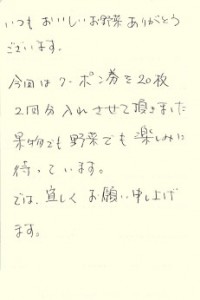 いつもおいしいお野菜ありがとう
ございます。
今回はクーポン券を20枚
2回分入れさせて頂きました
果物でも野菜でも楽しみに
待っています。
では、宜しくお願い申し上げ
ます。